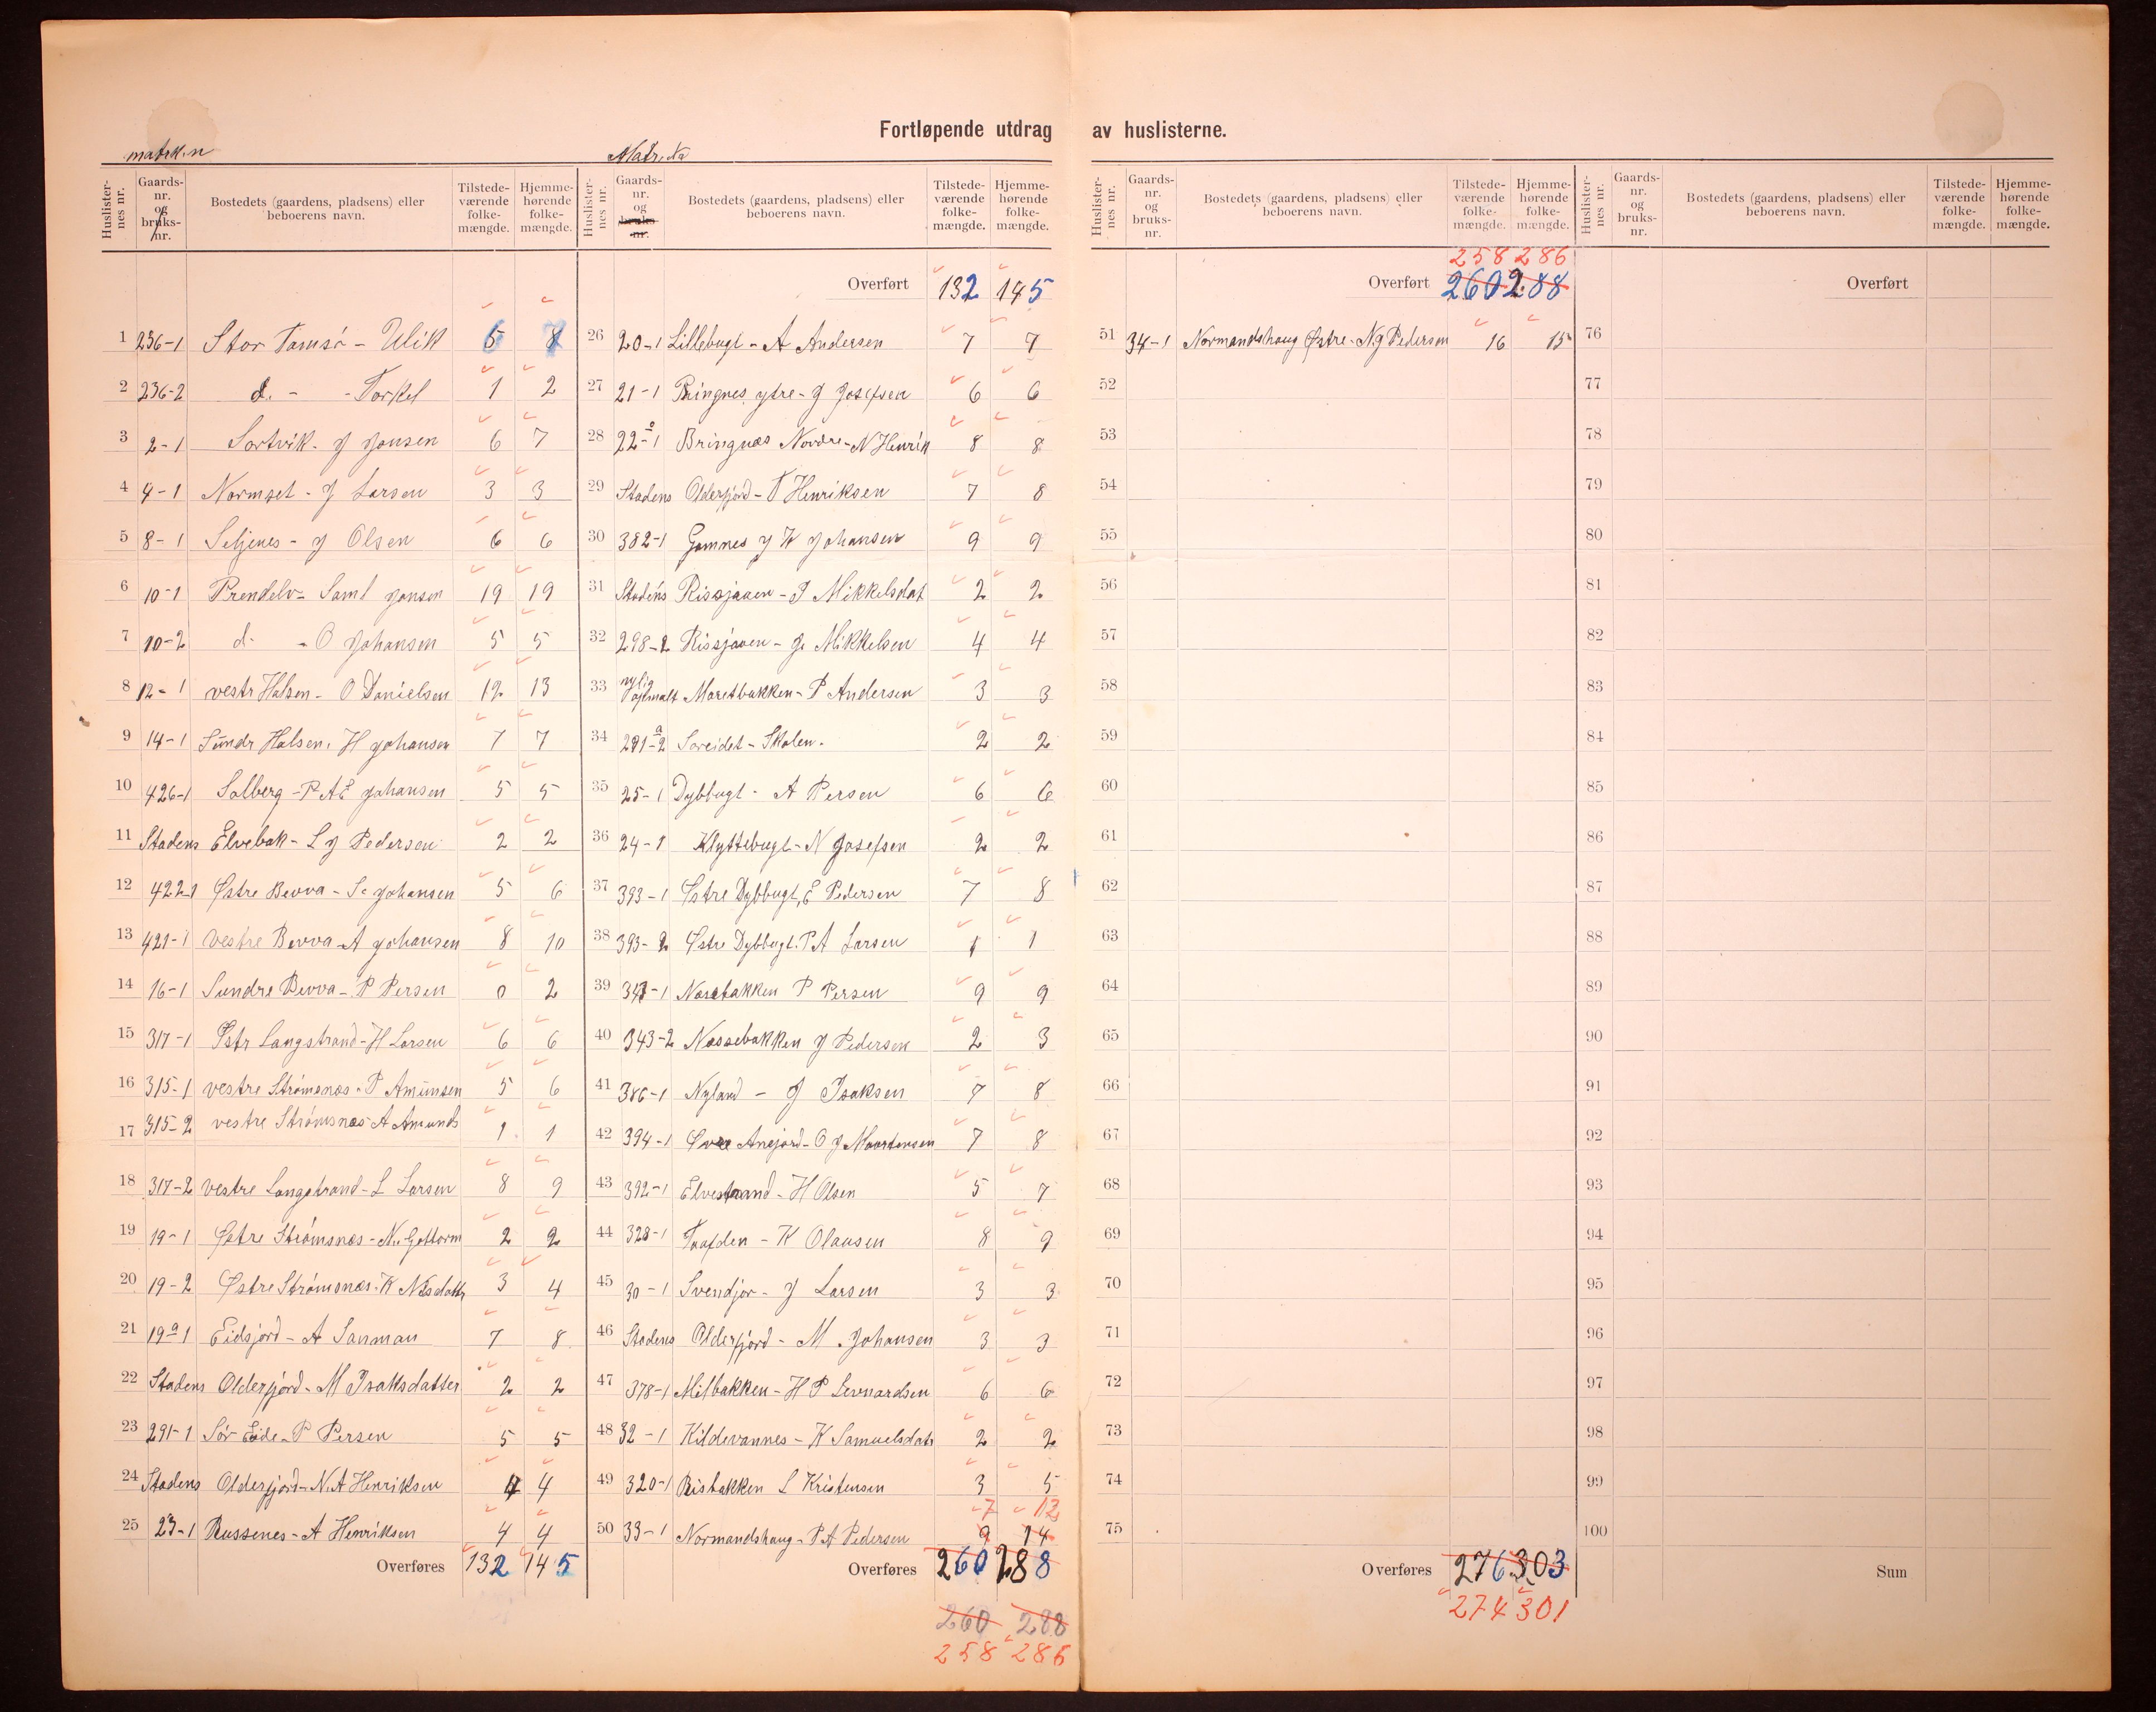 Fortløpende utdrag av huslisterne.
matrk.n
Huslister-nes nr.
Gaards-nr. og bruks-nr.
Bostedets (gaardens, pladsens) eller beboerens navn.
Tilstede-værende folke-mængde.
Hjemme-hørende folke-mængde.
1 236-1 Stor Tamsø - Ulik 6 8
2 236-2 d. - - Torkel 1 2
3 2-1 Sortvik - J Jonsen 6 7
4 4-1 Normset - J Larsen 3 3
5 8-1 Seljenes - J Olsen 6 6
6 10-1 Prendelv - Saml Jonsen 19 19
7 10-2 d. - O Johansen 5 5
8 12-1 vestr Halsen - O Danielsen 12 13
9 14-1 Søndr Halsen. H Johansen 7 7
10 426-1 Solberg - P A E Johansen 5 5
11 Stadens Elvebak - L J Pedersen 2 2
12 422-1 Østre Bevva - S. Johansen 5 6
13 421-1 Vestre Bevva - A Johansen 8 10
14 16-1 Sundre Bevva - P Persen 0 2
15 317-1 Østr Langstrand - H Larsen 6 6
16 315-1 vestre Strømsnæs - P Amunsen 5 6
17 315-2 vestre Strømsnæs - A Amunds 1 1
18 317-2 vestre Langstrand - L Larsen 8 9
19 19-1 Østre Strømsnæs - N. Gottorm 2 2
20 19-2 Østre Strømsnæs - K Nilsdattr 3 4
21 19 a 1 Eidsjord - A Sanman 7 8
22 Stadens Olderfjord - M Isaksdatter 2 2
23 291-1 Sør Eide - P Persen 5 5
24 Stadens Olderfjord - N. A Henriksen 4 4
25 23-1 Russenes - A Henriksen 4 4
Overføres 132 145
Matr. No
Huslister-nes nr.
Gaards-nr. og bruks-nr.
Bostedets (gaardens, pladsens) eller beboerens navn.
Tilstede-værende folke-mængde.
Hjemme-hørende folke-mængde.
Overført 132 145
26 20-1 Lillebugt - A Andersen 7 7
27 21-1 Bringnes ytre - J Josefsen 6 6
28 22-1 Bringnæs Nordre - N Henrik 8 8
29 Stadens Olderfjord - T Henriksen 7 8
30 382-1 Gamnes J K Johansen 9 9
31 Stadens Rissjaaen - I Mikkelsdat 2 2
32 298-2 Rissjaaen - J. Mikkelsen 4 4
33 nylig opmalt Maretbakken - P Andersen 3 3
34 291 a-2 Soreidet - Skolen. 2 2
35 25-1 Dybbugt - A Persen 6 6
36 24-1 Klyttebugt - N Josefsen 2 2
37 393-1 Østre Dybbugt, E Pedersen 7 8
38 393-2 Østre Dybbugt. P A Larsen 1 1
39 343-1 Næsebakken P Persen 9 9
40 343-2 Næssebakken J Pedersen 2 3
41 386-1 Nyland - J Isaksen 7 8
42 394-1 Øvre Anejord - O J Maartensen 7 8
43 392-1 Elvestrand - H Olsen 5 7
44 328-1 Taafden - K Olausen 8 9
45 30-1 Svendjor - J Larsen 3 3
46 Stadens Olderfjord - M. Johansen 3 3
47 378-1 Milbakken - H P Levnardsen 6 6
48 32-1 Kildevannes - K Samuelsdatr 2 2
49 320-1 Risbakken L Kristensen 3 5
7 12
50 33-1 Normandshaug - P A Pedersen 9 14
Overføres 260 288
260 288
258 286
Huslister-nes nr.
Gaards-nr. og bruks-nr.
Bostedets (gaardens, pladsens) eller beboerens navn.
Tilstede-værende folke-mængde.
Hjemme-hørende folke-mængde.
258 286
Overført 260 288
51 34-1 Normandshaug Østre - N. J Pedersen 16 15
52
53
54
55
56
57
58
59
60
61
62
63
64
65
66
67
68
69
70
71
72
73
74
75
Overføres 276 303
274 301
Huslister-nes nr.
Gaards-nr. og bruks-nr.
Bostedets (gaardens, pladsens) eller beboerens navn.
Tilstede-værende folke-mængde.
Hjemme-hørende folke-mængde.
Overført
76
77
78
79
80
81
82
83
84
85
86
87
88
89
90
91
92
93
94
95
96
97
98
99
100
Sum